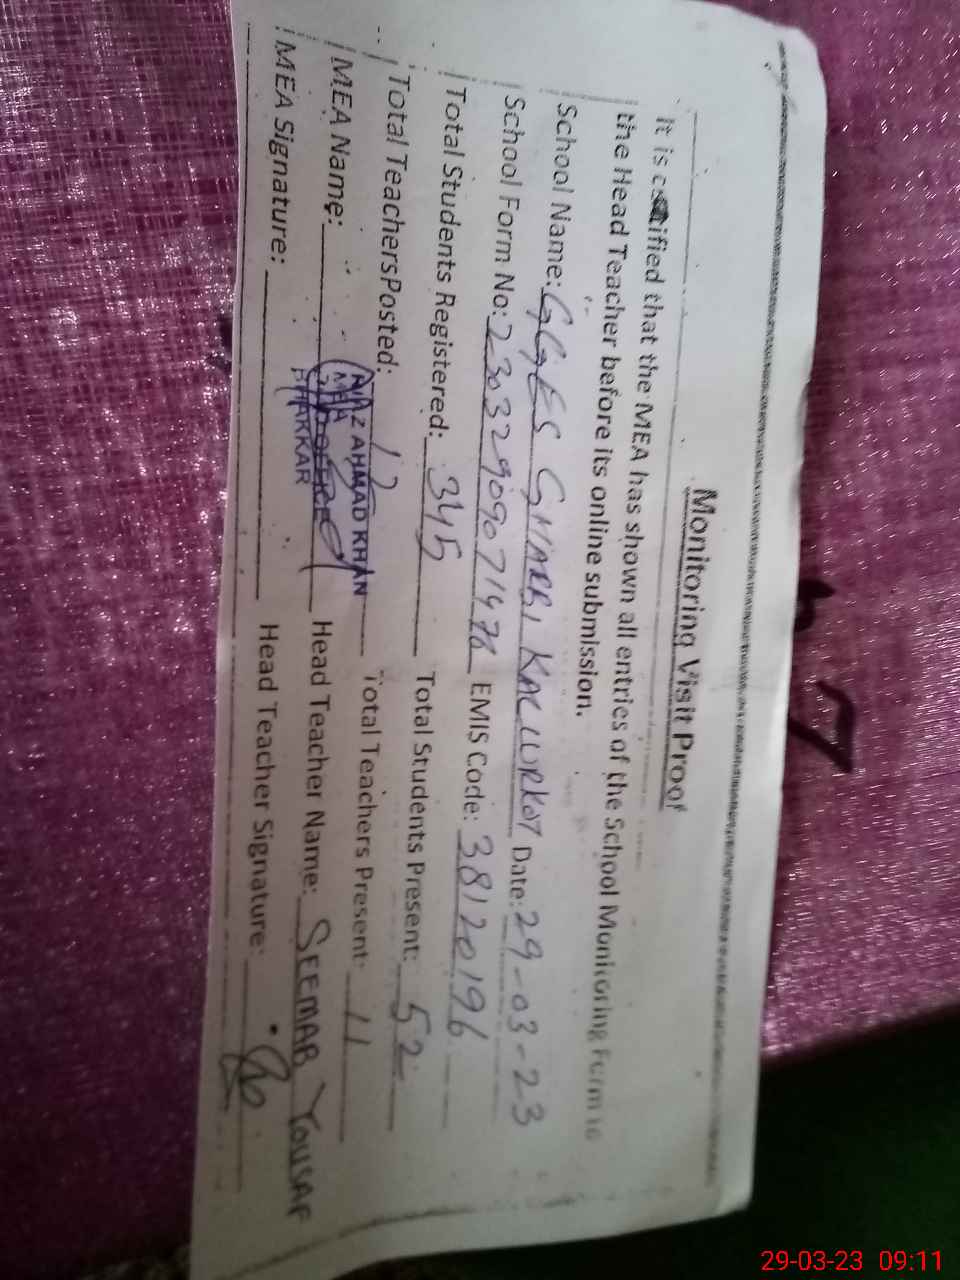 Monitoring Visit Proof
It is certified that the MEA has shown all entries of the School Monitoring Form to
the Head Teacher before its online submission.
School Name: GGES GHARBI KALLURKOT Date: 29-03-23
School Form No: 23032909071478 EMIS Code: 38120196
Total Students Registered: 345 Total Students Present: 52
Total Teachers Posted: 12 Total Teachers Present: 11
MEA Name: Head Teacher Name: SEEMAB YOUSAF
AHMAD KHAN
MEA
BHAKKAR
MEA Signature: Head Teacher Signature:
29-03-23 09:11